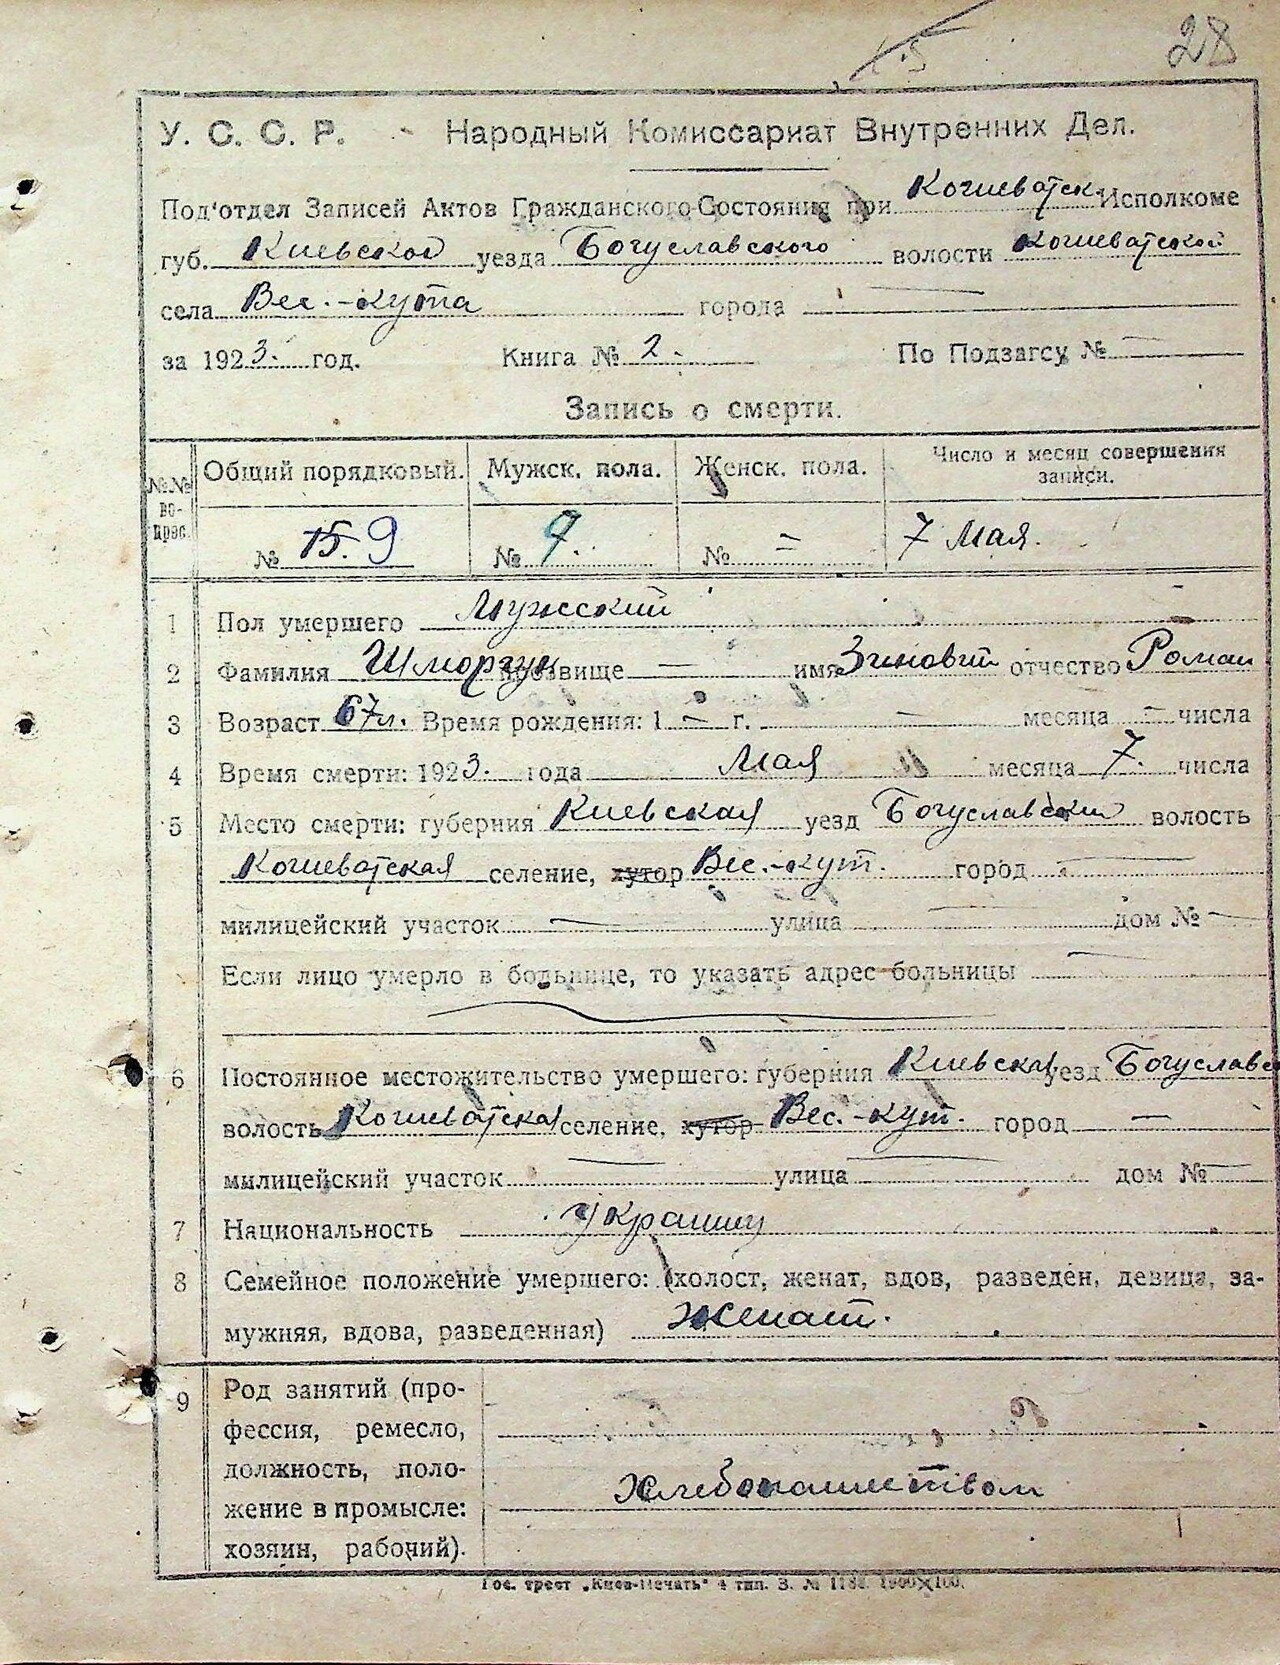 28
У. С. С. Р. - Народный Комиссариат Внутренних Дел.
Под'отдел Записей Актов Гражданского Состояния при Кошеватск. Исполкоме
губ. Киевской уезда Богуславского волости Кошеватской
села Вес.-кута города —
за 1923. год. Книга № 2. По Подзагсу № —
Запись о смерти.
№№ вопрос. Общий порядковый. Мужск. пола. Женск. пола. Число и месяц совершения записи.
№ 15. 9 № 9. № = 7 Мая.
1 Пол умершего Мужский
2 Фамилия Шморгун прозвище — имя Зиновий отчество Роман
3 Возраст 67 л. Время рождения: 1 — г. — месяца — числа
4 Время смерти: 1923. года Мая месяца 7. числа
5 Место смерти: губерния Киевская уезд Богуславский волость
Кошеватская селение, хутор Вес.-кут. город —
милицейский участок — улица — дом № —
Если лицо умерло в больнице, то указать адрес больницы —
6 Постоянное местожительство умершего: губерния Киевская уезд Богуславс
волость Кошеватская селение, хутор Вес.-кут. город —
милицейский участок — улица — дом № —
7 Национальность украинец
8 Семейное положение умершего: (холост, женат, вдов, разведен, девица, за-
мужняя, вдова, разведенная) Женат.
9 Род занятий (про-
фессия, ремесло,
должность, поло-
жение в промысле:
хозяин, рабочий).
Хлебопашеством
Гос. трест „Киев-Печать" 4 тип. З. № 1188. 1900×100.